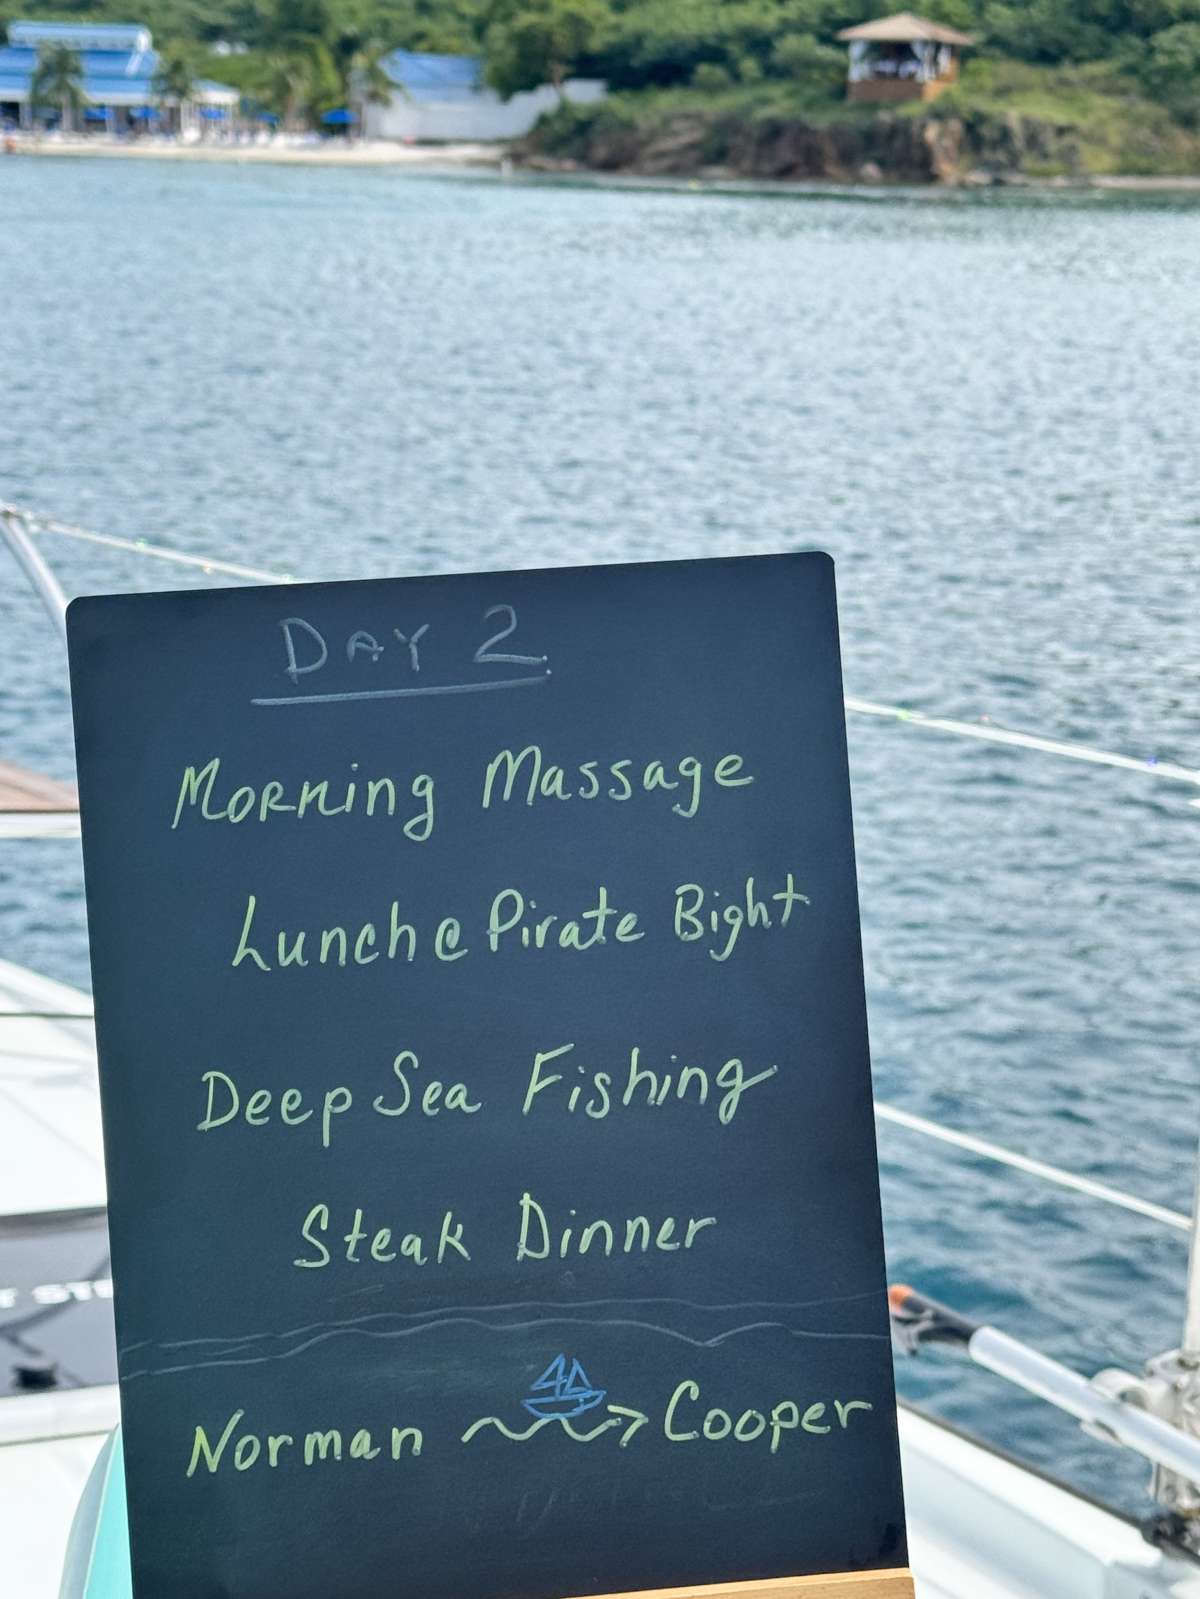 DAY 2
Morning Massage
Lunch @ Pirate Bight
Deep Sea Fishing
Steak Dinner
Norman Cooper